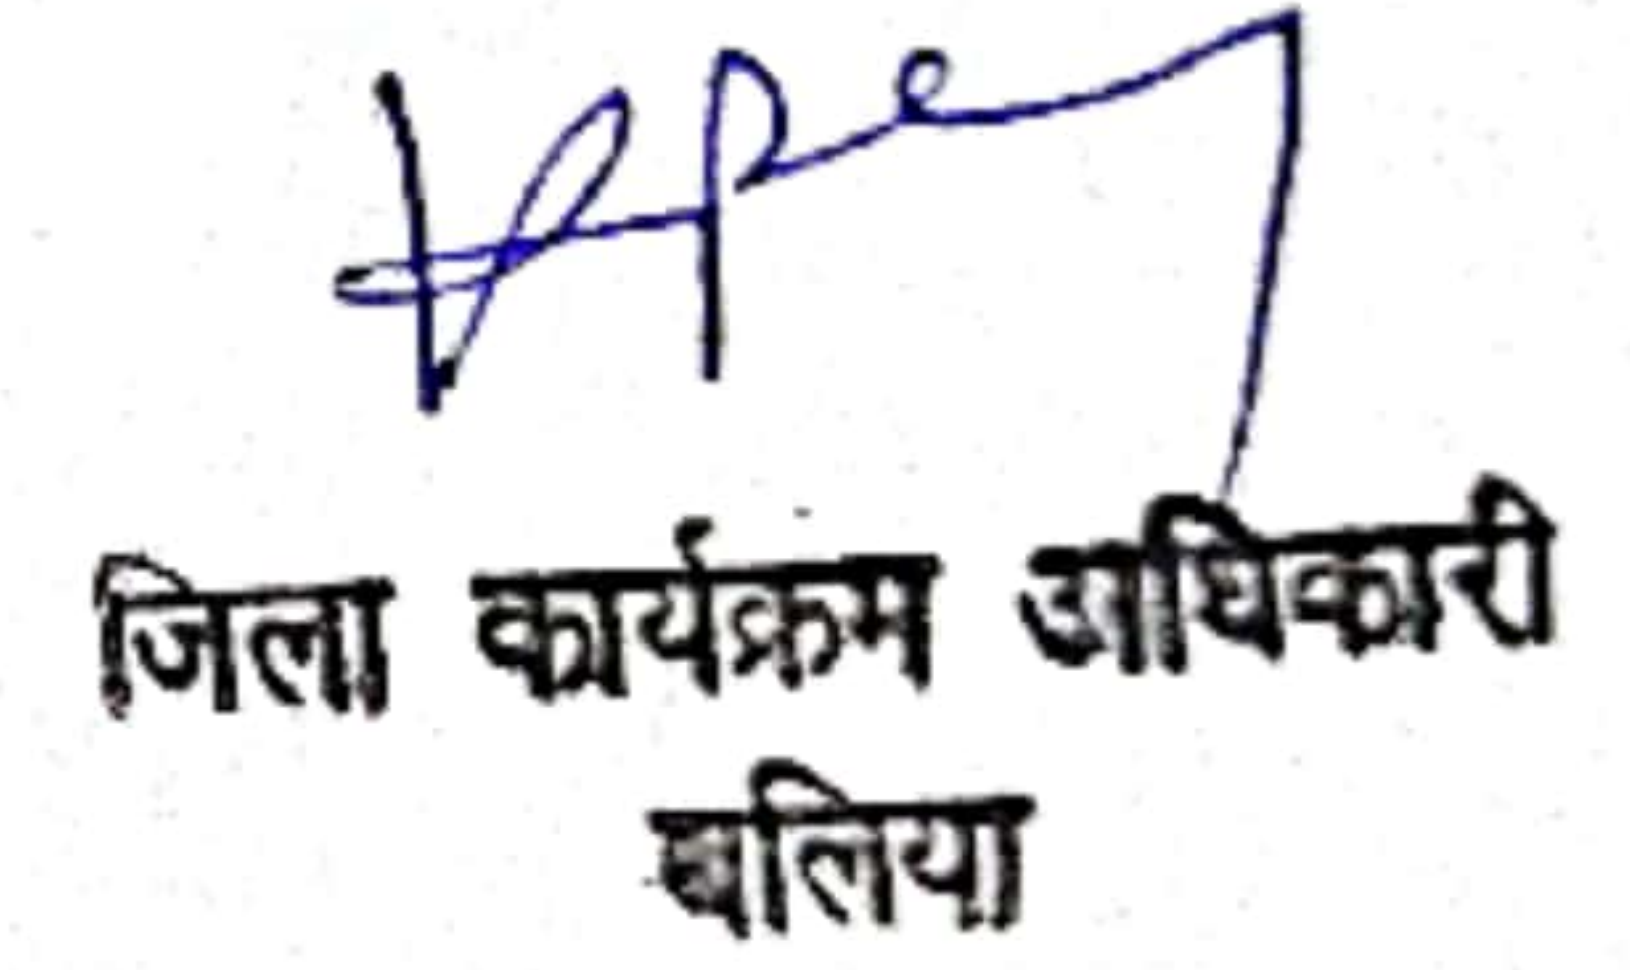 जिला कार्यक्रम अधिकारी
बलिया